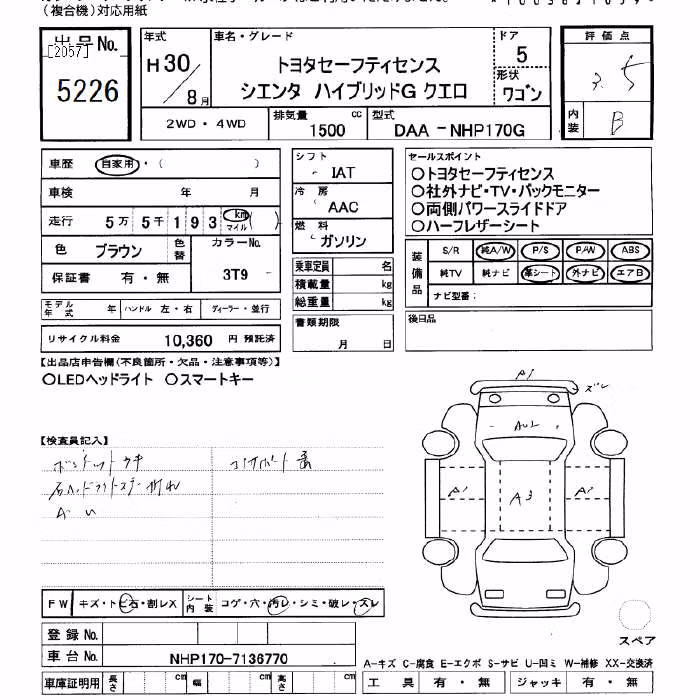 (複合機)対応用紙
出品No. [2057]
5226
年式
H30/8月
車名・グレード
トヨタセーフティセンス
シエンタ ハイブリッドG クエロ
ドア
5
形状
ワゴン
評価点
3.5
内装
B
2WD・4WD
排気量
1500 cc
型式
DAA-NHP170G
車歴 自家用・( )
車検 年 月
走行 5万 5千 1 9 3 km マイル ( )
色 ブラウン 色替
カラーNo.
3T9
保証書 有・無
モデル年式 年 ハンドル 左・右 ディーラー・並行
リサイクル料金 10,360 円 預託済
シフト
IAT
冷房
AAC
燃料
ガソリン
乗車定員 名
積載量 kg
総重量 kg
書類期限
月 日
セールスポイント
○トヨタセーフティセンス
○社外ナビ・TV・バックモニター
○両側パワースライドドア
○ハーフレザーシート
装備品
S/R 純A/W P/S P/W ABS
純TV 純ナビ 革シート 外ナビ エアB
ナビ型番:
後日品
【出品店申告欄(不良箇所・欠品・注意事項等)】
○LEDヘッドライト ○スマートキー
【検査員記入】
A1
A3
A1
FW キズ・トビ石・割レX シート内装 コゲ・穴・汚レ・シミ・破レ・スレ
登録No.
車台No. NHP170-7136770
車庫証明用 長さ cm 幅 cm 高さ cm
スペア
A-キズ C-腐食 E-エクボ S-サビ U-凹ミ W-補修 XX-交換済
工具 有・無 ジャッキ 有・無